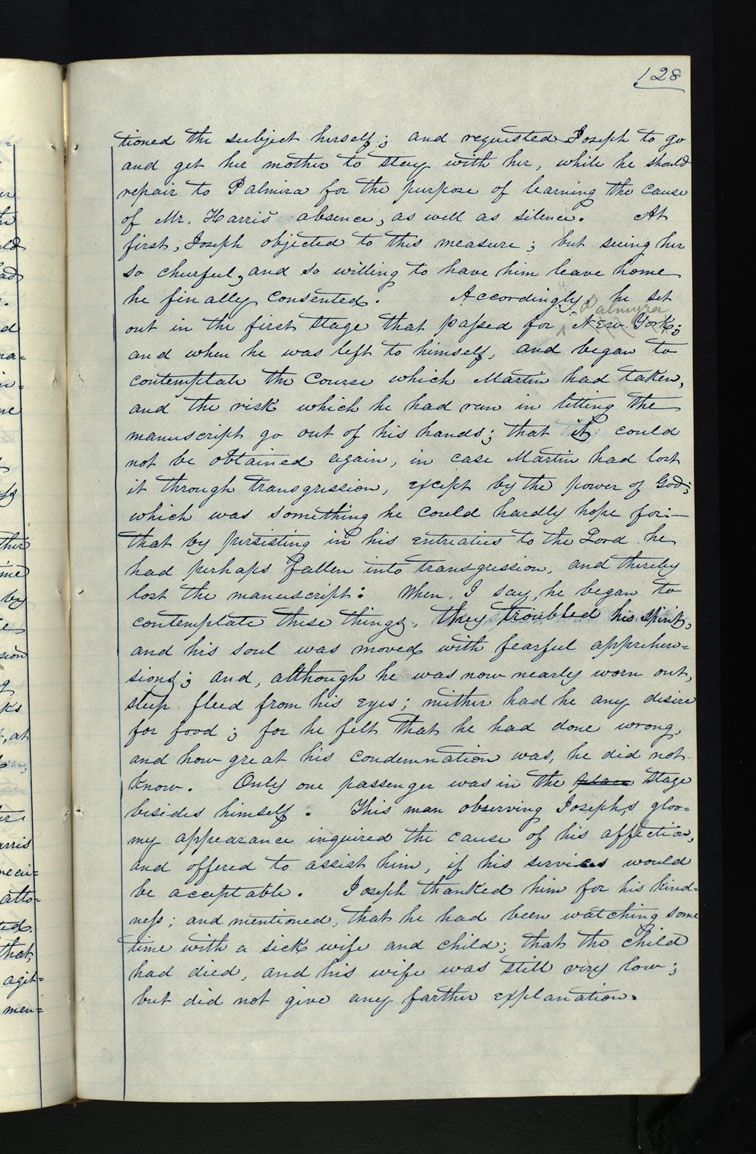 128
tioned the subject herself; and requested Joseph to go
and get her mother to stay with her, while he should
repair to Palmira for the purpose of learning the cause
of Mr. Harris' absence, as well as silence. At
first, Joseph objected to this measure; but seeing her
so cheerful, and so willing to have him leave home
he finally consented. Accordingly, he set
Palmyra
out in the first stage that passed for New York;
and when he was left to himself, and began to
contemplate the course which Martin had taken,
and the risk which he had run in letting the
manuscript go out of his hands; that it could
not be obtained again, in case Martin had lost
it through transgression, except by the power of God;
which was something he could hardly hope for:—
that by persisting in his entreaties to the Lord he
had perhaps fallen into transgression, and thereby
lost the manuscript: When, I say, he began to
contemplate these things, they troubled his spirit,
and his soul was moved with fearful apprehen=
sions; and, although he was now nearly worn out,
sleep fleed from his eyes; neither had he any desire
for food; for he felt that he had done wrong,
and how great his condemnation was, he did not
know. Only one passenger was in the place stage
besides himself. This man observing Joseph,s gloo=
my appearance inquired the cause of his affection,
and offered to assist him, if his services would
be acceptable. Joseph thanked him for his kind-
ness; and mentioned, that he had been watching some
time with a sick wife and child; that the child
had died, and his wife was still very low;
but did not give any farther explanation.
agit=
men=